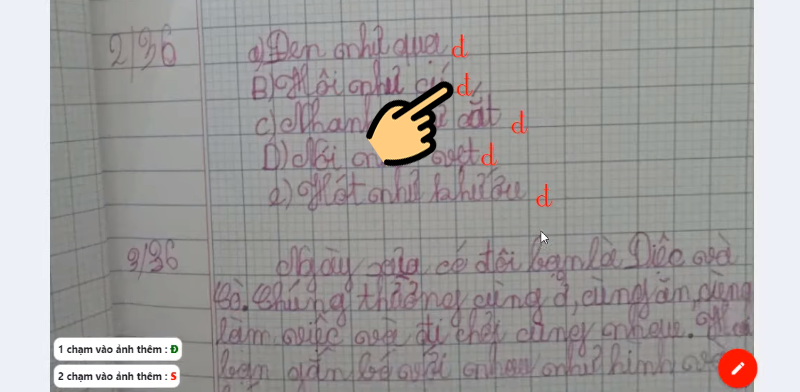 2/36
a) Đen như quạ d
B) Hôi như cú d
c) Nhanh cắt d
D) Nói vẹt d
e) Hót như khướu d
3/36 Ngày xưa có đôi bạn là Diệc và
Cò. Chúng thường cùng ở, cùng ăn, cùng
làm việc và đi chơi cùng nhau. Hai
bạn gắn bó với nhau như hình với
1 chạm vào ảnh thêm : Đ
2 chạm vào ảnh thêm : S